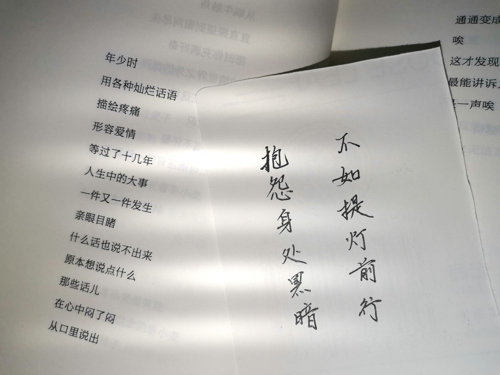 年少时
用各种灿烂话语
描绘疼痛
形容爱情
等过了十几年
人生中的大事
一件又一件发生
亲眼目睹
什么话也说不出来
原本想说点什么
那些话儿
在心中闷了闷
从口里说出
抱怨身处黑暗
不如提灯前行
通通变成
唉
这才发现
最能讲诉
一声唉